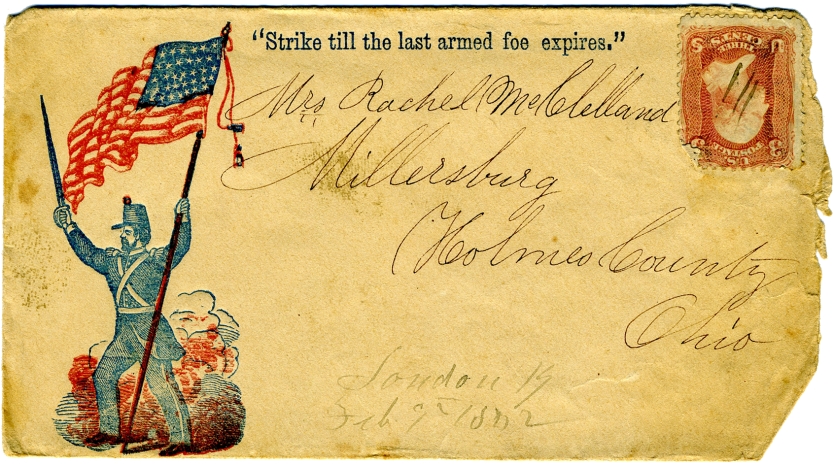 "Strike till the last armed foe expires."
Mrs Rachel McClelland
Millersburg
Holmes County
Ohio
London Ky
Feb 9 1862
U.S. POSTAGE
THREE CENTS
3 3